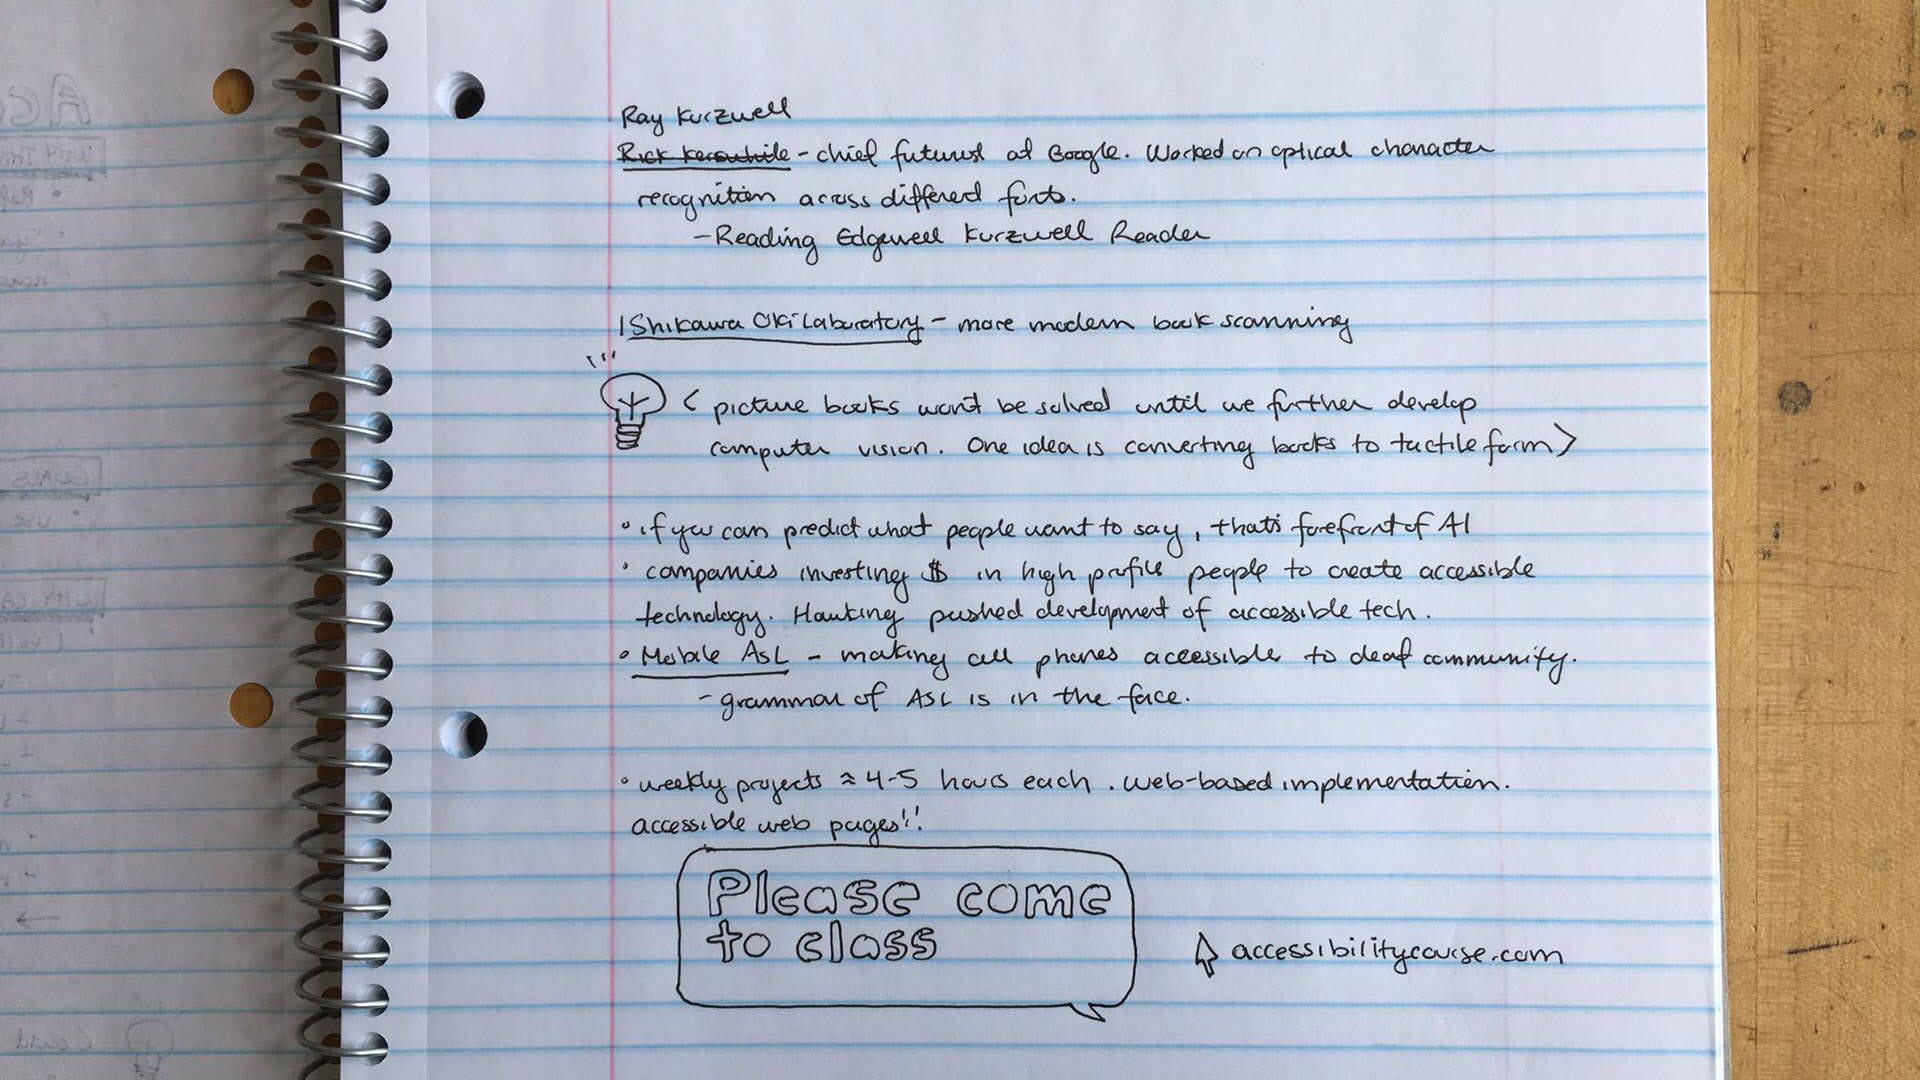 Ray Kurzwell
Rick Kerswhile - chief futurist at Google. Worked on optical character
recognition across different fonts.
- Reading Edgewell Kurzwell Reader
Ishikawa Oki Laboratory - more modern book scanning
< picture books won't be solved until we further develop
computer vision. One idea is converting books to tactile form >
• if you can predict what people want to say, that's forefront of AI
• companies investing $ in high profile people to create accessible
technology. Hawking pushed development of accessible tech.
• Mobile ASL - making all phones accessible to deaf community.
- grammar of ASL is in the face.
• weekly projects ≈ 4-5 hours each. web-based implementation.
accessible web pages!!
Please come
to class
accessibilitycourse.com